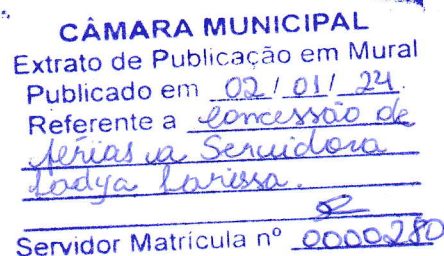 CÂMARA MUNICIPAL
Extrato de Publicação em Mural
Publicado em 02/01/24.
Referente a concessão de
férias a Servidora
Ladya Larissa.
Servidor Matrícula nº 0000280